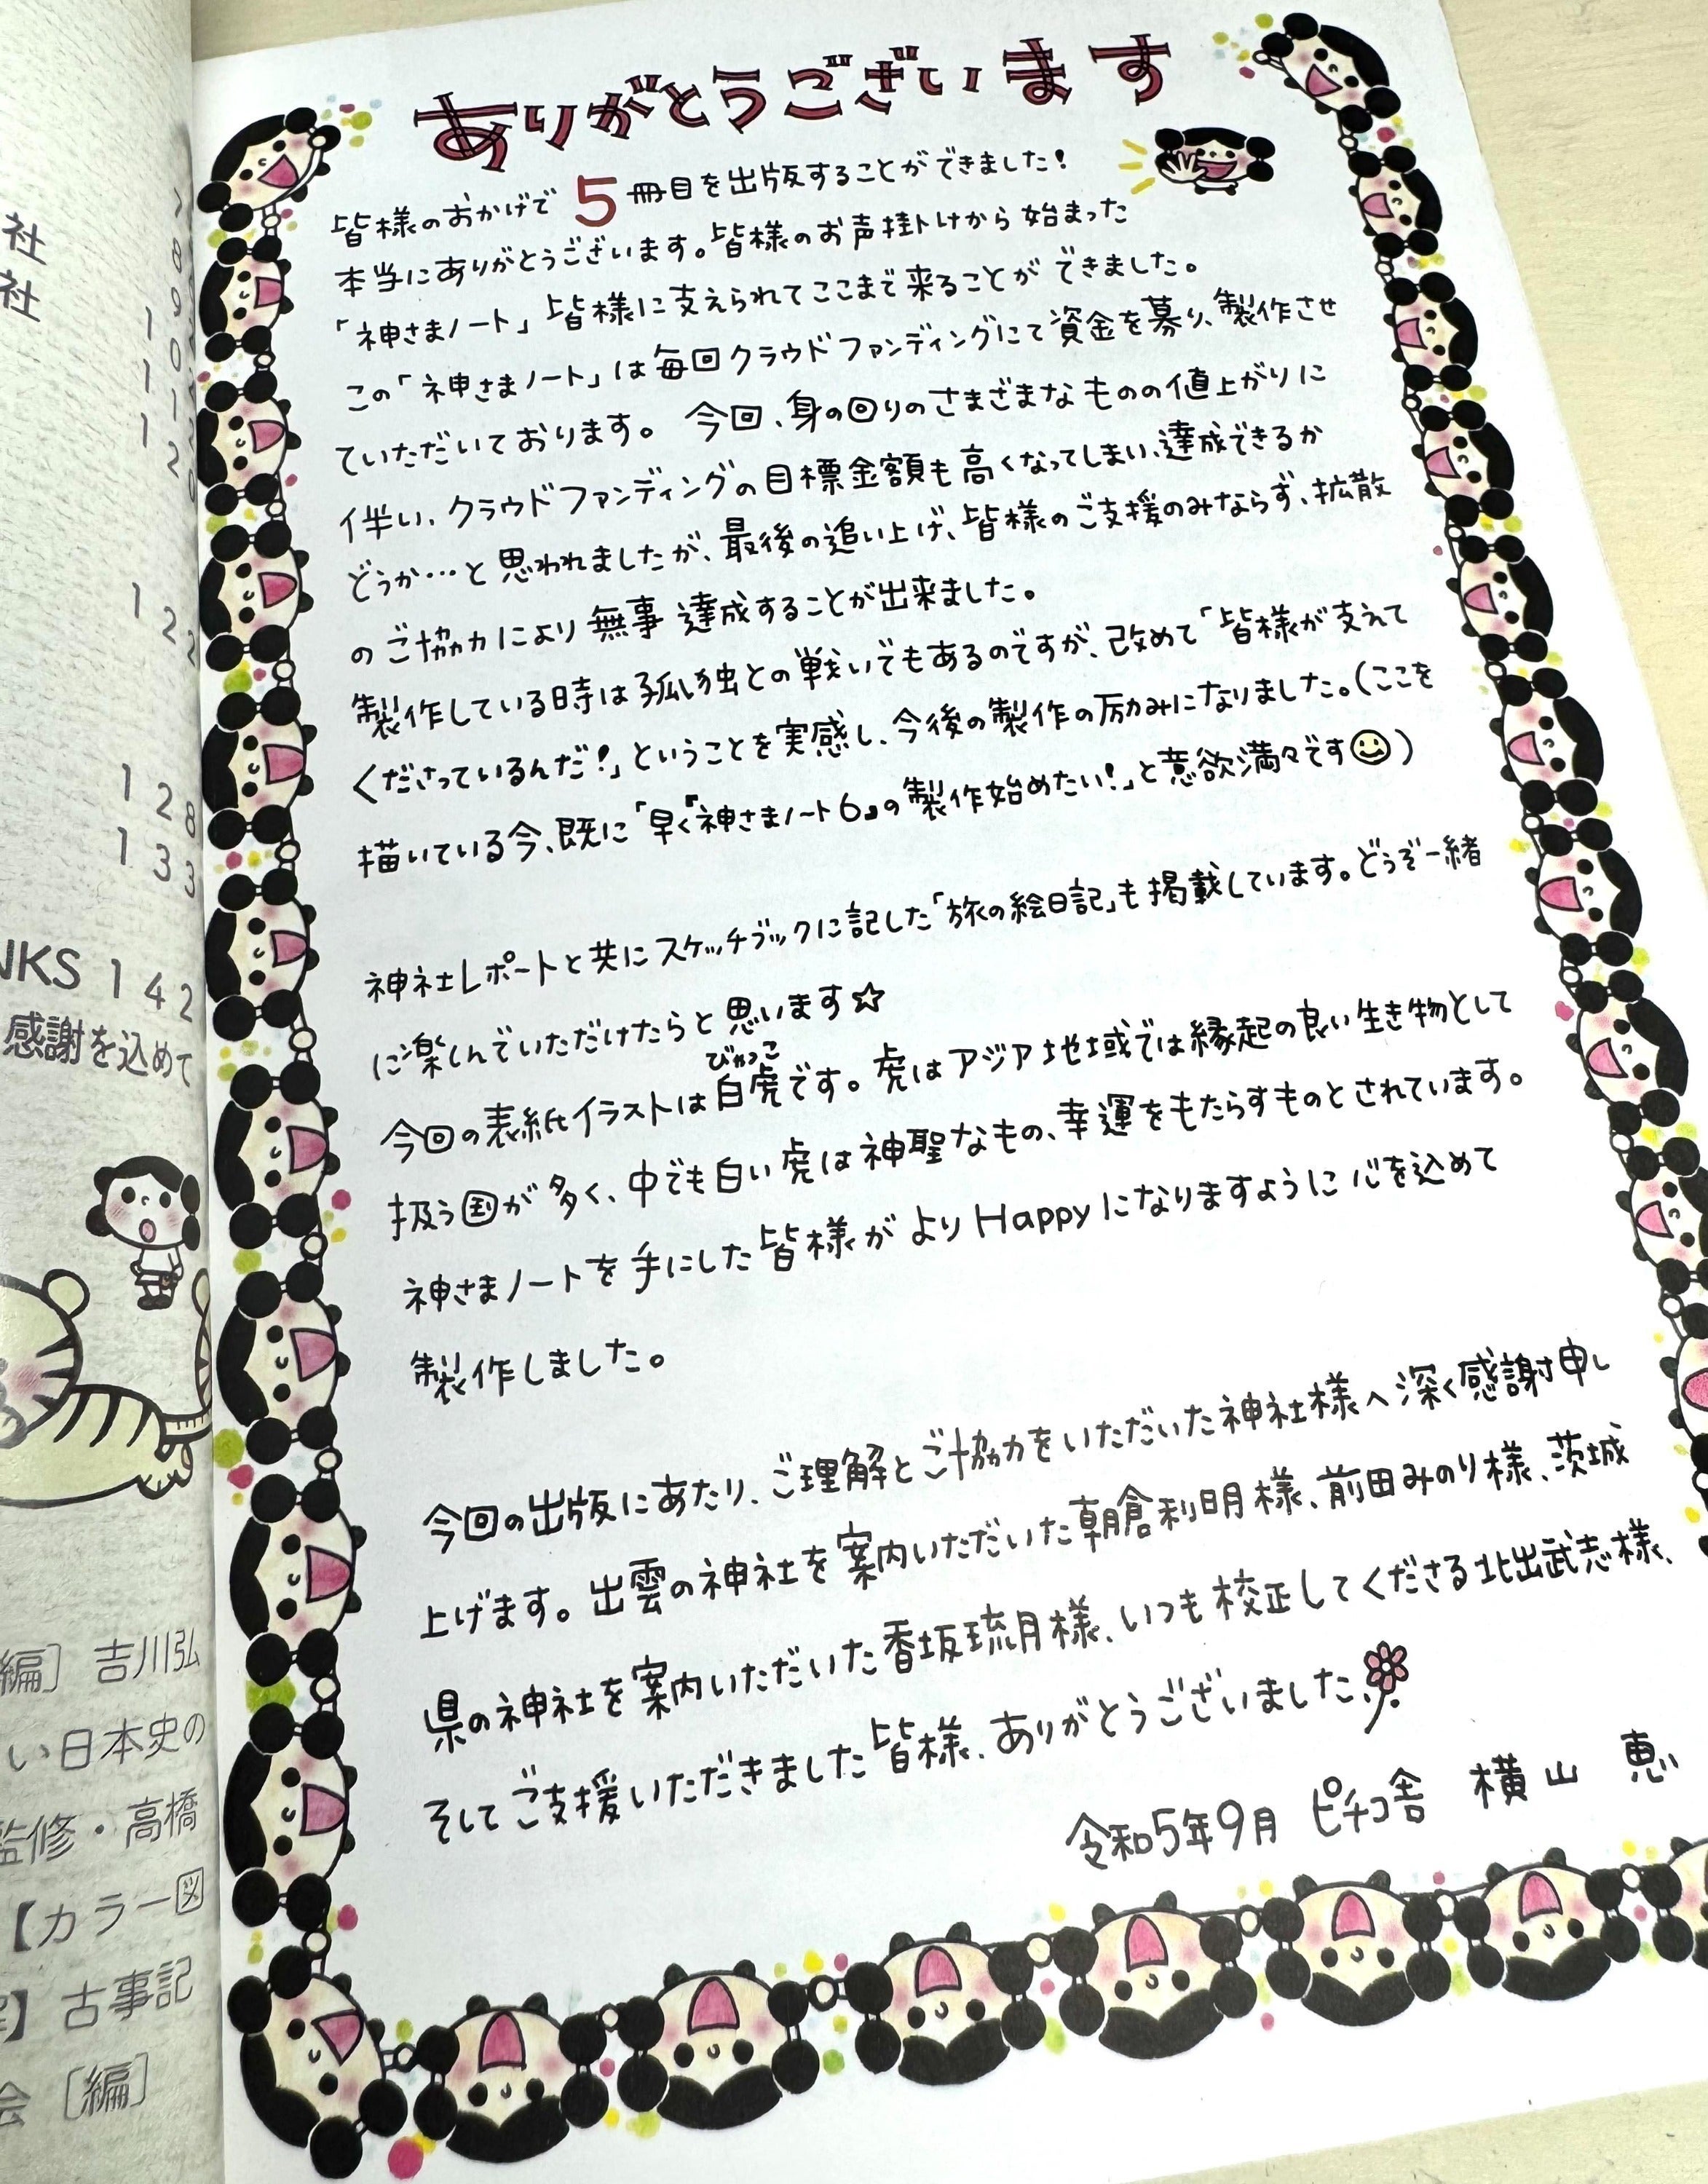 社
社
7
8
9
10
11
12
20
122
128
133
NKS 142
感謝を込めて
編〕 吉川弘
い日本史の
監修・高橋
【カラー図
】 古事記
会 〔編〕
ありがとうございます
皆様のおかげで 5 冊目を出版することができました!
本当にありがとうございます。皆様のお声掛けから始まった
「神さまノート」 皆様に支えられてここまで来ることができました。
この「神さまノート」は毎回クラウドファンディングにて資金を募り、製作させ
ていただいております。 今回、身の回りのさまざまなものの値上がりに
伴い、クラウドファンディングの目標金額も高くなってしまい、達成できるか
どうか…と思われましたが、最後の追い上げ、皆様のご支援のみならず、拡散
のご協力により無事 達成することが出来ました。
製作している時は孤独との戦いでもあるのですが、改めて「皆様が支えて
くださっているんだ!」ということを実感し、今後の製作の励みになりました。(ここを
描いている今、既に「早く『神さまノート6』の製作始めたい!」と意欲満々です☺)
神社レポートと共にスケッチブックに記した「旅の絵日記」も掲載しています。どうぞ一緒
に楽しんでいただけたらと思います☆
びゃっこ
今回の表紙イラストは白虎です。虎はアジア地域では縁起の良い生き物として
扱う国が多く、中でも白い虎は神聖なもの、幸運をもたらすものとされています。
神さまノートを手にした皆様がよりHappyになりますように心を込めて
製作しました。
今回の出版にあたり、ご理解とご協力をいただいた神社様へ深く感謝申し
上げます。出雲の神社を案内いただいた朝倉利明様、前田みのり様、茨城
県の神社を案内いただいた香坂琉月様、いつも校正してくださる北出武志様、
そしてご支援いただきました皆様、ありがとうございました
令和5年9月 ピチコ舎 横山 恵